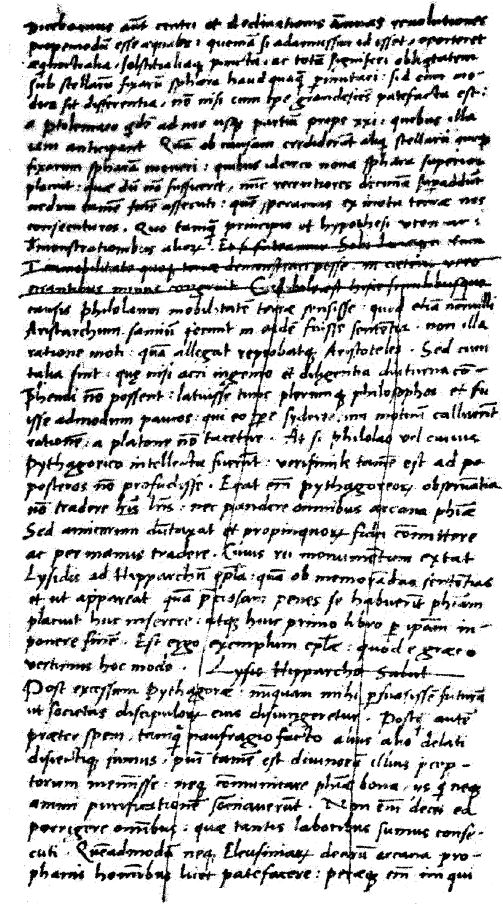 Dicebamus aut centri et declinationis annuas revolutiones
propemodu esse æquales : quonia si adamussim id esset , oporteret
æquinoctialia , solstitialiaq puncta : ac tota signiferi obliquitatem
sub stellaru fixaru sphæra haud quaq permutari : sed cum mo-
dica sit differentia , no nisi cum tpe grandescens patefacta est :
a ptolemæo ad nos usq partiu prope xxi : quibus illa
iam anticipant . Qua ob causam crediderut aliq stellaru quoq
fixarum sphæram moveri : quibus idcirco nona sphæra superior
placuit : quæ du no sufficeret , nunc recentiores decima superaddut
nedum tamen fine assecuti : que speramus ex motu terræ nos
consecuturos . Quo tamq principio et hypothesi utemur in
demonstrationibus aliorum . Et si fateamur Solis Lunæq cursu
Immobilitate quoq terræ demonstrari posse : in cæteris vero
errantibus minus congruit Credibile est hisce similibusque
causis Philolaum mobilitate terræ sensisse : quod etia nonnulli
Aristarchum samiu ferunt in eade fuisse sententia . non illa
ratione moti : qua allegat reprobatq Aristoteles . Sed cum
talia sint : quæ nisi acri ingenio et diligentia diuturna co-
phendi no possent : latuisse tunc plerumq philosophos et fu
isse admodum paucos : qui eo tpe sydereoru motuu calluerint
ratione : a platone no tacetur . At si philolao vel cuivis
Pythagorico intellecta fuerint : verisimile tame est ad po
posteros no profudisse . Erat eni pythagoreoru observatia
no tradere libris . nec pandere omnibus arcana phiæ
Sed amicorum dutaxat et propinquoru fidei comittere
ac per manus tradere . Cuius rei monumentum extat
Lysidis ad Hipparchu epla : qua ob memoradas sententias
et ut appareat qua pciosam penes se habuerit phiam
placuit huc inserere : atq huic primo libro p ipam im-
ponere fine . Est ergo exemplum eplæ : quod e græco
vertimus hoc modo . Lysis Hipparcho Salut
Post excessum Pythagoræ nuquam mihi psuasisse futuru
ut societas discipuloru eius disiungeretur . Postq aute
præter spem , tamq naufragio facto alius alio delati
disiectiq sumus , piu tame est divinoru illius precep-
torum meminisse : neq comunicare phiæ bona , ijs q neq
animi purificatione somniaverut . Non eni decet ea
porrigere omnibus : quæ tantis laboribus sumus conse-
cuti . Queadmodu neq Eleusiniaru dearu arcana pro-
phanis hominibus licet patefacere : peræq eni iniqui